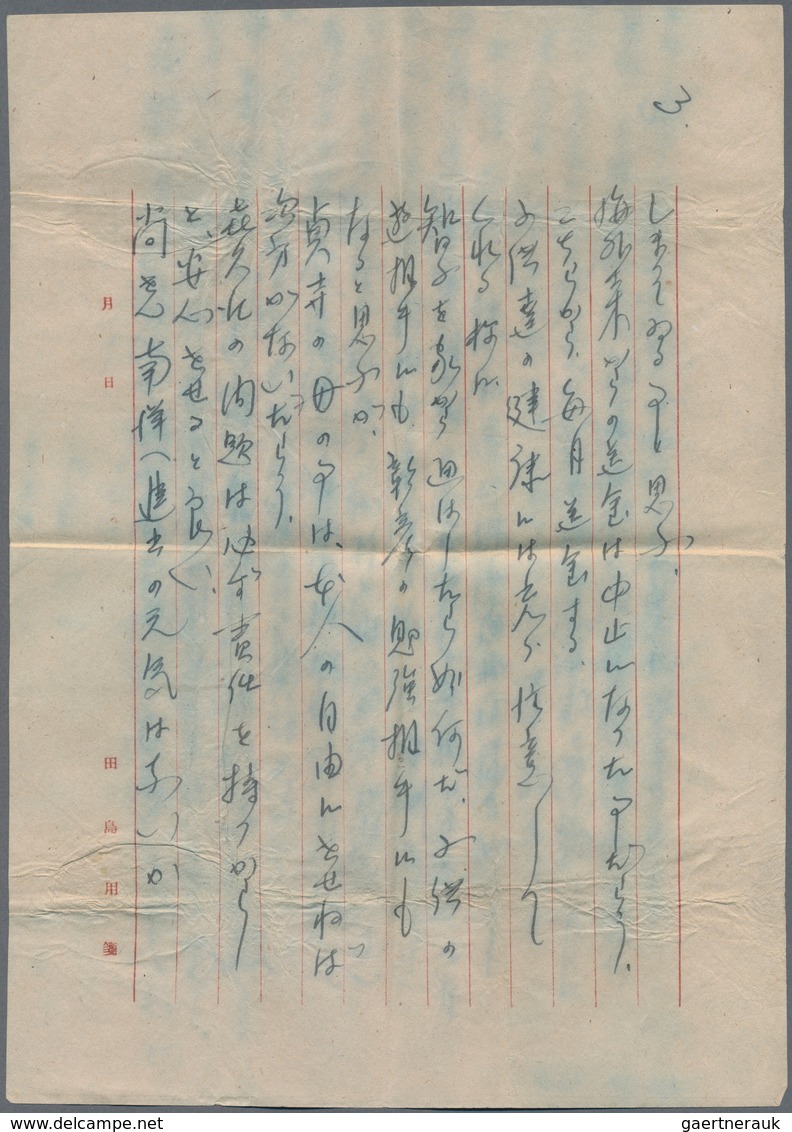 3.
しまつてゐる事と思ふ。
からの送金は中止になつた事だらう。
こちらから、毎月送金する。
子供達の健康には充分注意して
くれる様に
智子を家から通はしたら如何だ、子供の
遊相手にも、の勉強相手にも
なると思ふが、
貞寺の母の事は、本人の自由にさせねば
仕方がないだらう。
の問題は必ず責任を持つから
と、安心させると良い。
尚南洋へ進出の元気はないか
月 日
田島用箋
gaertnerauk